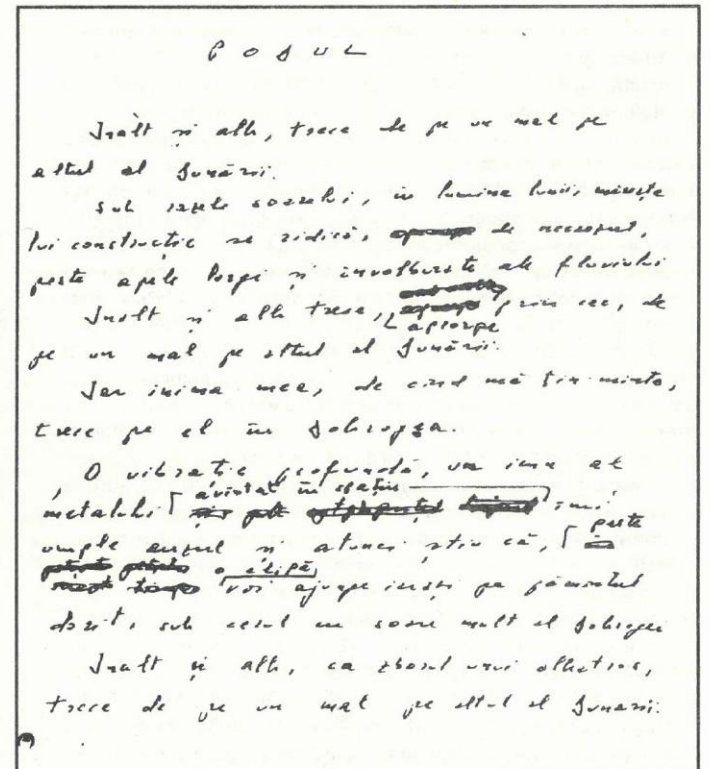 PODUL
Inalt și alb, trece de pe un mal pe
altul al Dunării.
Sub razele soarelui, în lumina lunii, măreața
lui construcție se ridică, de necrezut,
peste apele largi și învolburate ale fluviului
Inalt și alb trece, aproape prin cer, de
pe un mal pe altul al Dunării.
Iar inima mea, de cînd mă țin minte,
trece pe el în Dobrogea.
O vibrație profundă, un imn al
metalului avîntat în spațiu îmi
umple auzul și atunci știu că, peste
o clipă, voi ajunge iarăși pe pămîntul
dorit, sub cerul cu soare mult al Dobrogei
Inalt și alb, ca zborul unui albatros,
trece de pe un mal pe altul al Dunării.